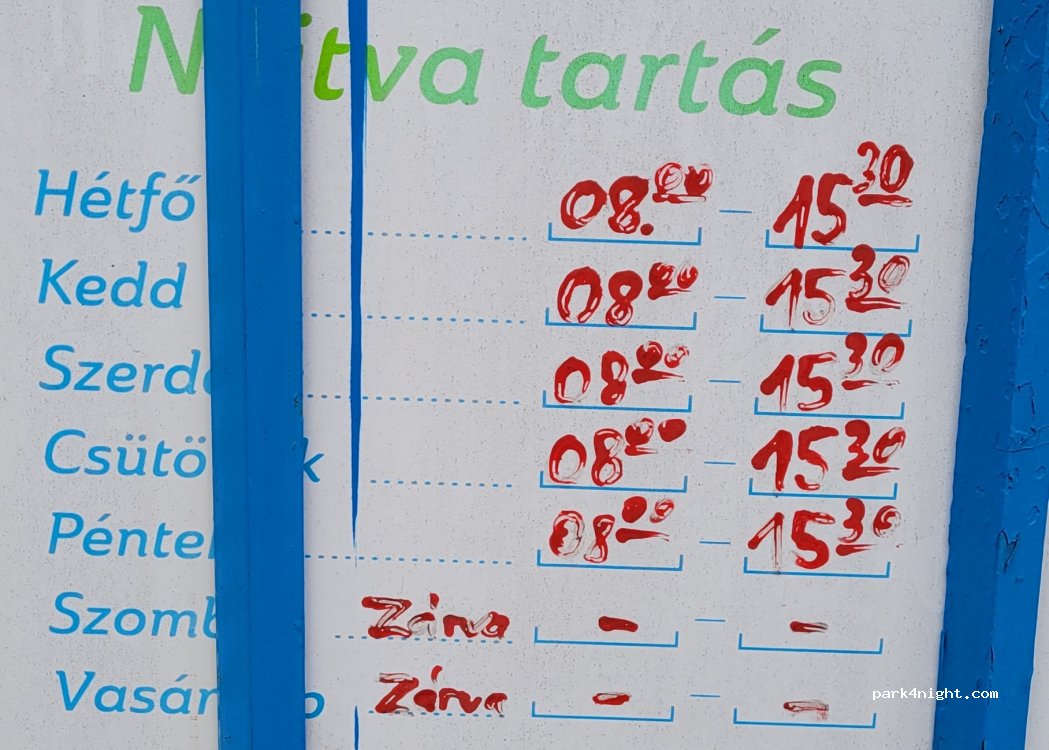 Nyitva tartás
Hétfő 08.00 – 15 30
Kedd 08 00 – 15 30
Szerda 08 00 – 15 30
Csütörtök 08 00 – 15 30
Péntek 08 00 – 15 30
Szombat Zárva - – -
Vasárnap Zárva - – -
park4night.com